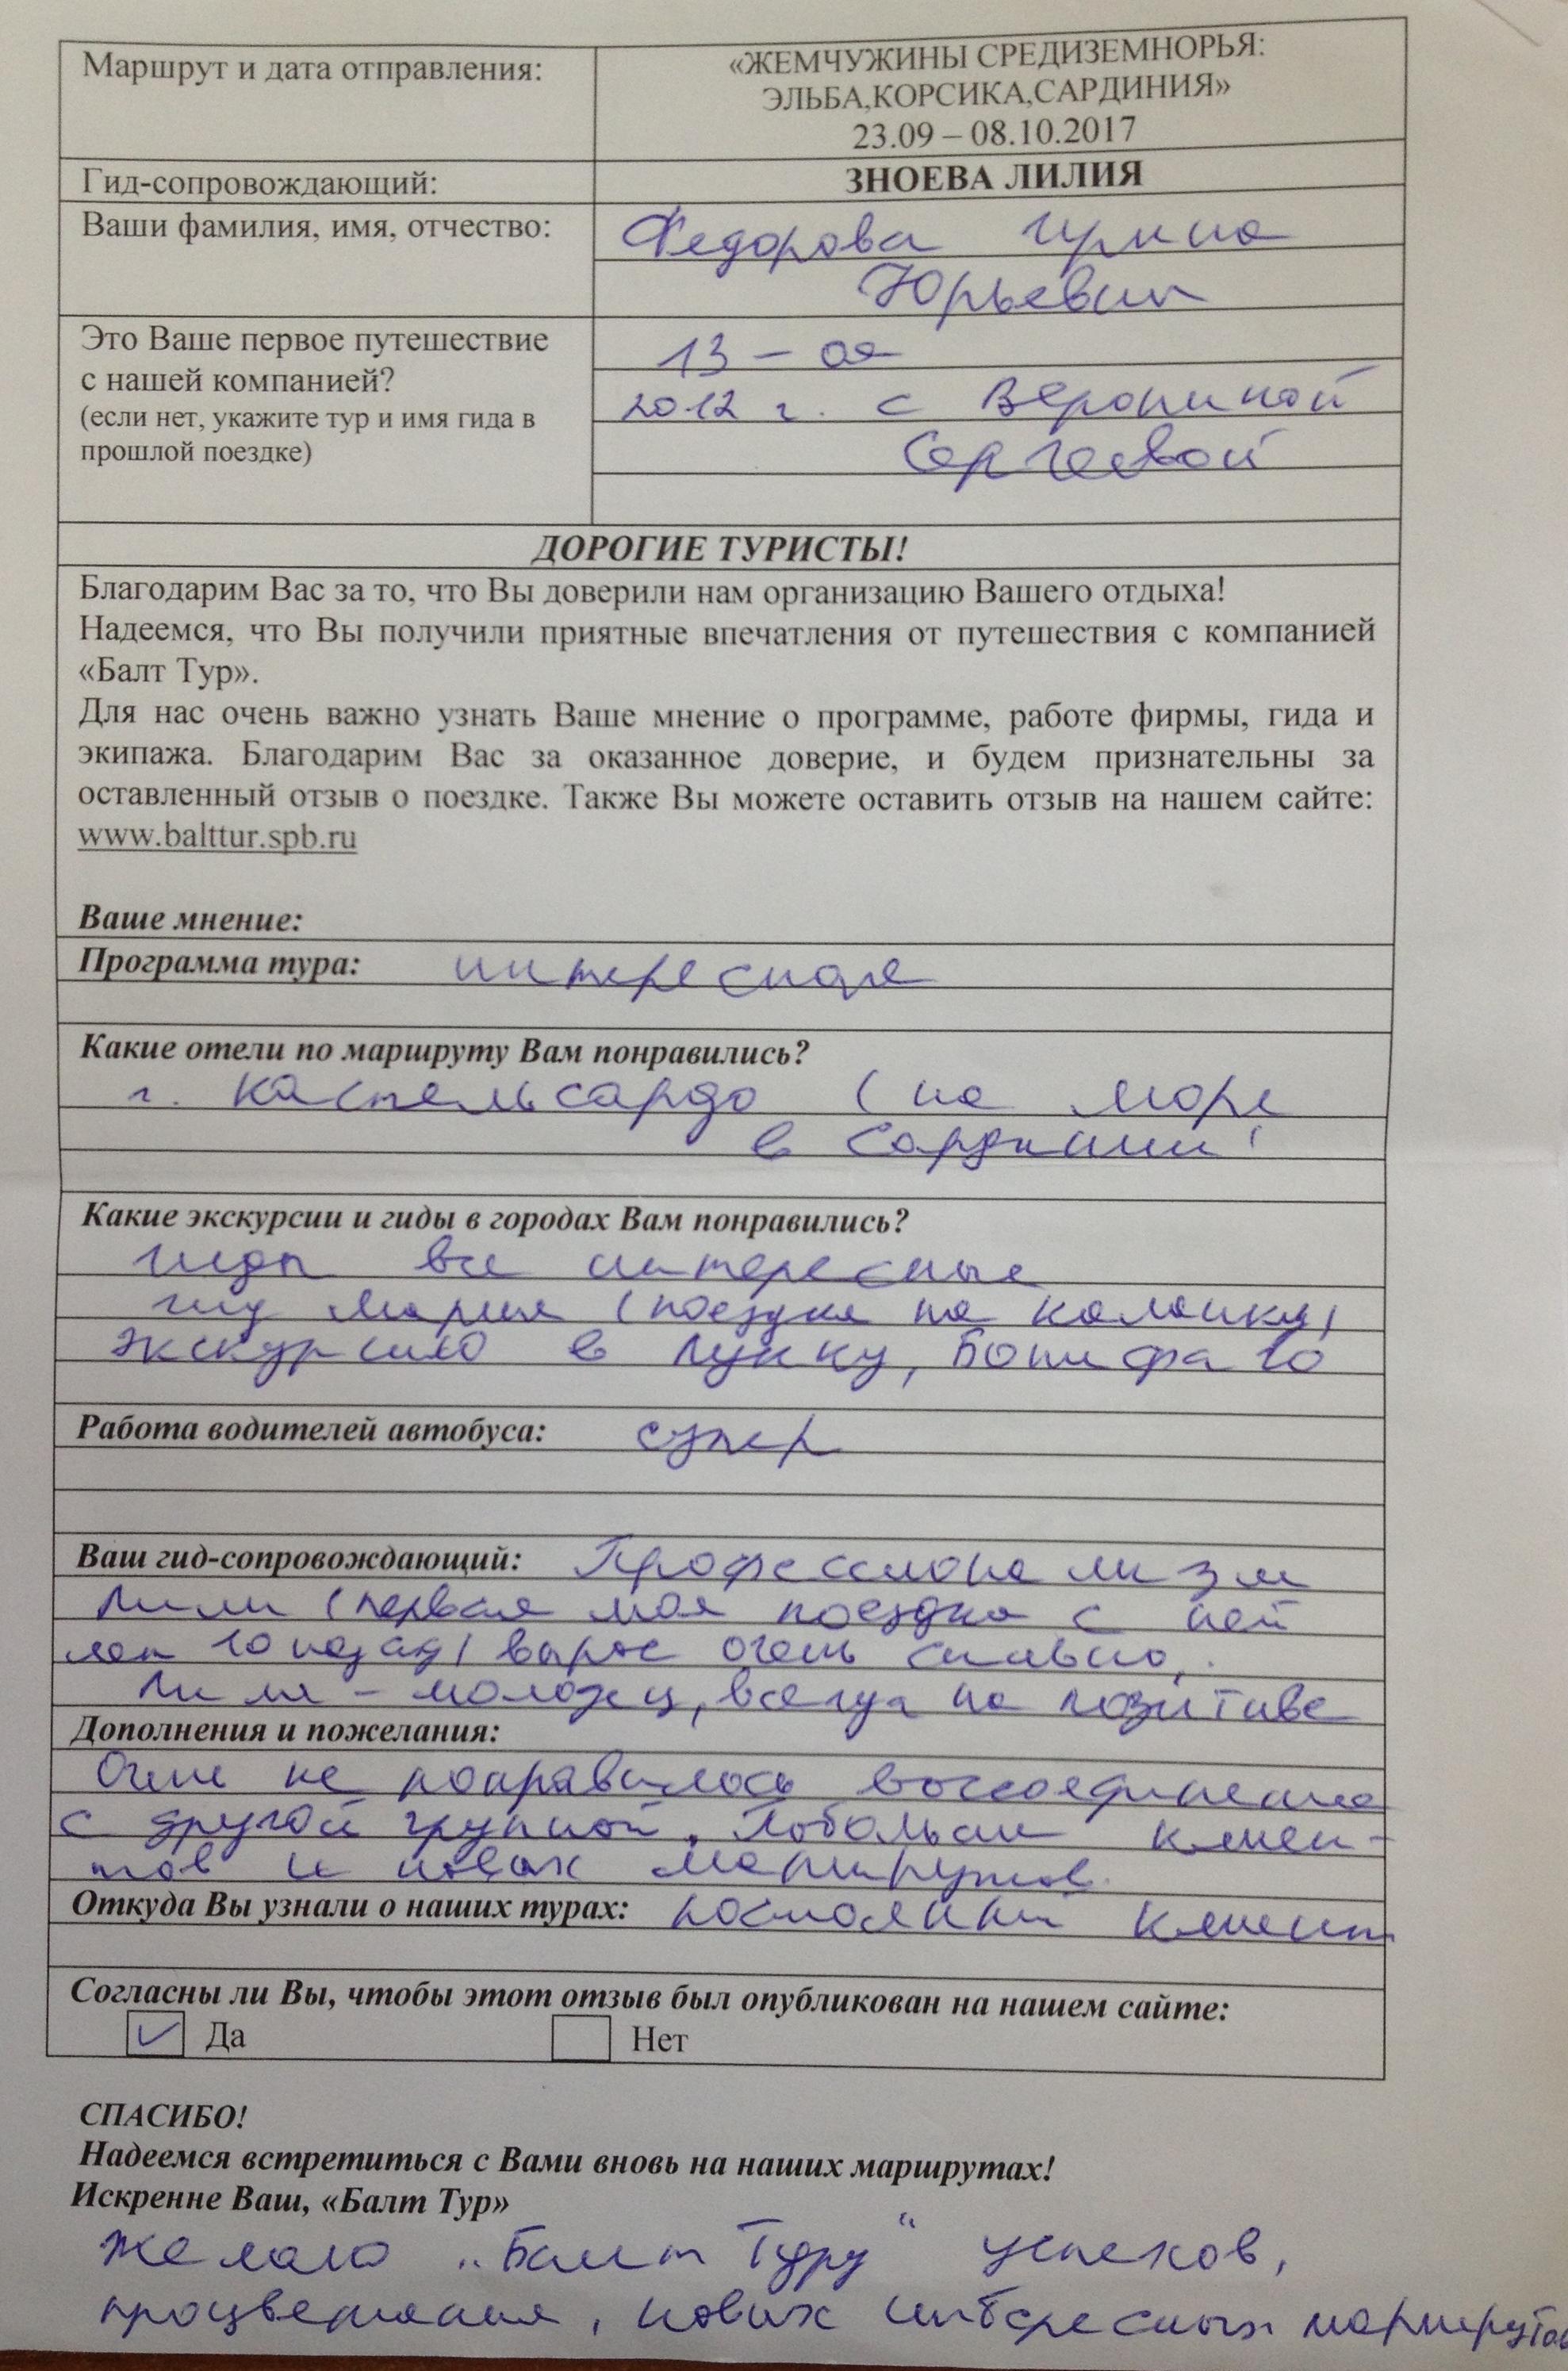 Маршрут и дата отправления:
«ЖЕМЧУЖИНЫ СРЕДИЗЕМНОРЬЯ:
ЭЛЬБА,КОРСИКА,САРДИНИЯ»
23.09 – 08.10.2017
Гид-сопровождающий:
ЗНОЕВА ЛИЛИЯ
Ваши фамилия, имя, отчество:
Федорова Ирина
Юрьевна
Это Ваше первое путешествие
с нашей компанией?
(если нет, укажите тур и имя гида в
прошлой поездке)
13 – ая
2012 г. с Вероникой
Сергеевой
ДОРОГИЕ ТУРИСТЫ!
Благодарим Вас за то, что Вы доверили нам организацию Вашего отдыха!
Надеемся, что Вы получили приятные впечатления от путешествия с компанией
«Балт Тур».
Для нас очень важно узнать Ваше мнение о программе, работе фирмы, гида и
экипажа. Благодарим Вас за оказанное доверие, и будем признательны за
оставленный отзыв о поездке. Также Вы можете оставить отзыв на нашем сайте:
www.balttur.spb.ru
Ваше мнение:
Программа тура: интересная
Какие отели по маршруту Вам понравились?
г. Кастельсардо (на море
в Сардинии)
Какие экскурсии и гиды в городах Вам понравились?
гиды все интересные
гид Мария (поездка на
экскурсию в Лукку, Бонифачо
Работа водителей автобуса: супер
Ваш гид-сопровождающий: Профессионализм
Лили (первая моя поездка с ней
лет 10 назад) вырос очень сильно,.
Лиля – молодец, всегда на позитиве
Дополнения и пожелания:
Очень не понравилось воссоединение
с другой группой. Побольше клиен-
тов и новых маршрутов.
Откуда Вы узнали о наших турах: постоянный клиент
Согласны ли Вы, чтобы этот отзыв был опубликован на нашем сайте:
✓ Да Нет
СПАСИБО!
Надеемся встретиться с Вами вновь на наших маршрутах!
Искренне Ваш, «Балт Тур»
Желаю „Балт Туру“ успехов,
процветания, новых интересных маршрутов